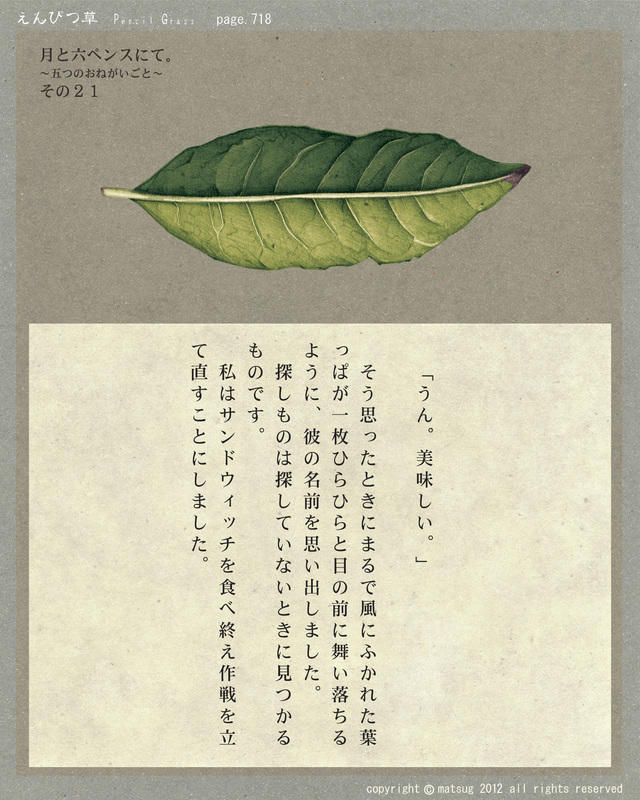 えんぴつ草 Pencil Grass page.718
月と六ペンスにて。
～五つのおねがいごと～
その２１
「うん。美味しい。」
そう思ったときにまるで風にふかれた葉
っぱが一枚ひらひらと目の前に舞い落ちる
ように、彼の名前を思い出しました。
探しものは探していないときに見つかる
ものです。
私はサンドウィッチを食べ終え作戦を立
て直すことにしました。
copyright © matsug 2012 all rights reserved